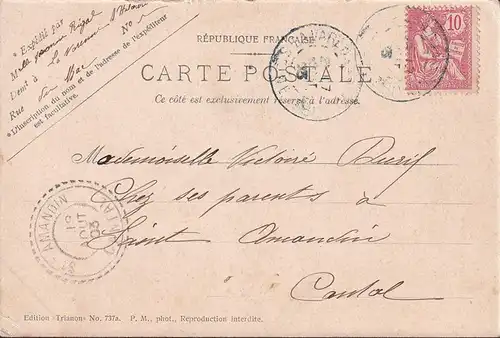 Expédié par
Mlle Jeanne Rigal
Demt à La Varenne St Hilaire
Rue Du Bac No
*L'inscription du nom et de l'adresse de l'expéditeur
est facultative.
RÉPUBLIQUE FRANÇAISE
CARTE POSTALE
Ce côté est exclusivement réservé à l'adresse.
10
Mademoiselle Victoire Durif
Chez ses parents à
Saint Amandin
Cantal
ST AMANDIN
CANTAL
18
AOUT
03
Edition «Trianon» No. 737a. P. M., phot., Reproduction interdite.